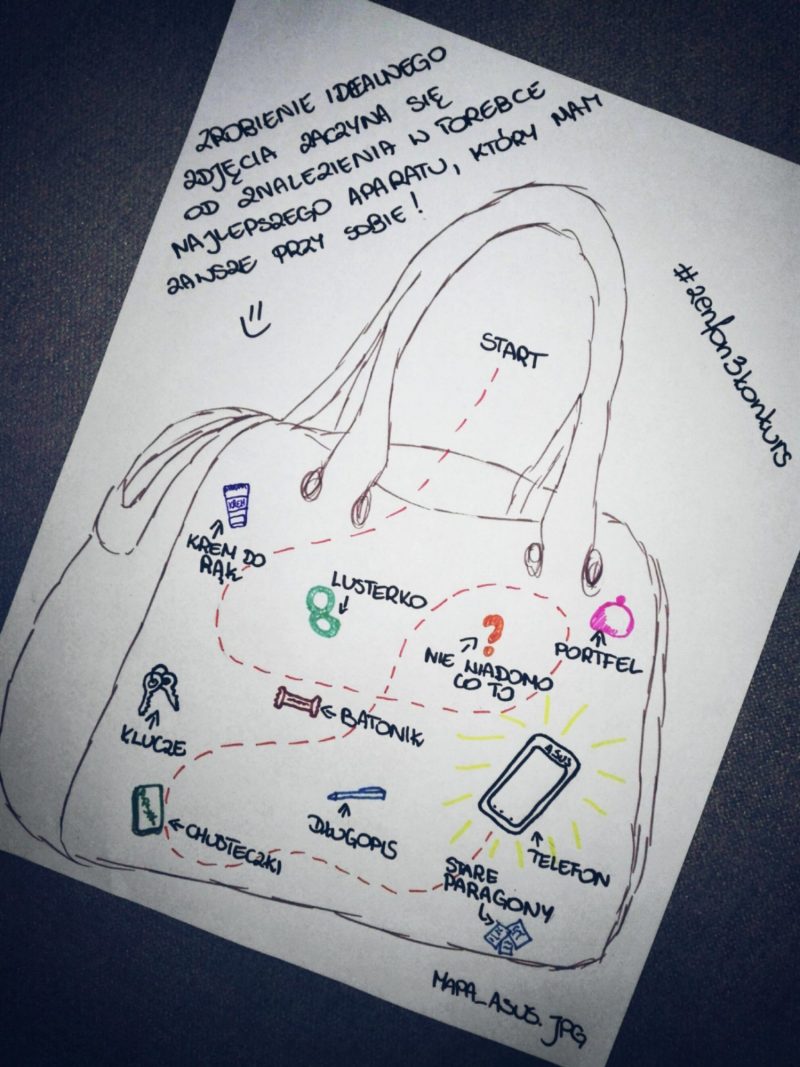 ZROBIENIE IDEALNEGO
ZDJĘCIA ZACZYNA SIĘ
OD ZNALEZIENIA W TOREBCE
NAJLEPSZEGO APARATU, KTÓRY MAM
ZAWSZE PRZY SOBIE!
#zenfon3konkurs
START
KREM
KREM DO
RĄK
LUSTERKO
?
NIE WIADOMO
CO TO
PORTFEL
KLUCZE
BATONIK
ASUS
CHUSTECZKI
DŁUGOPIS
TELEFON
STARE
PARAGONY
MAPA_ASUS.JPG